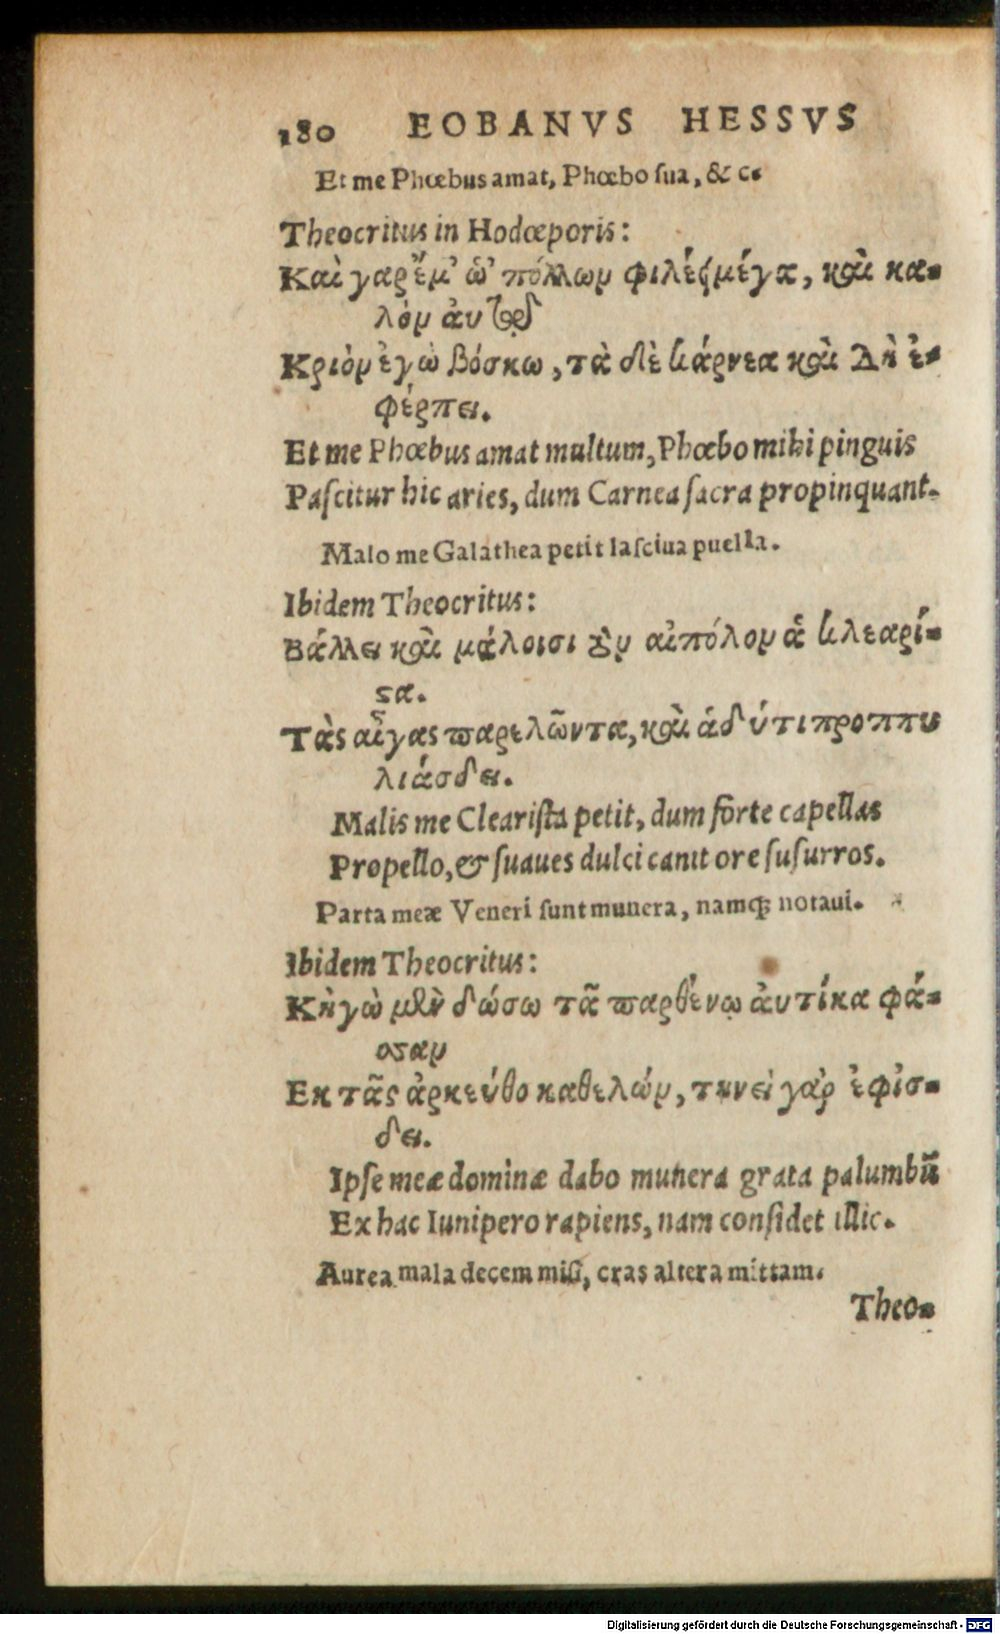 180 EOBANVS HESSVS
Et me Phœbus amat, Phœbo ſua, & c.
Theocritus in Hodœporis:
Καὶ γαρ ἔμ᾽ ὡ᾽ πόλλων φιλέει μέγα, καὶ κα-
λὸν ἀυτῷ
Κριὸν ἐγὼ βόσκω, τὰ δὲ κάρνεα καὶ Δὴ ἐ-
φέρπει.
Et me Phœbus amat multum, Phœbo mihi pinguis
Paſcitur hic aries, dum Carnea ſacra propinquant.
Malo me Galathea petit laſciua puella.
Ibidem Theocritus:
Βάλλει καὶ μάλοισι τὸν αἰπόλον ἁ κλεαρί-
ϛα.
Τὰς αἶγας παρελῶντα, καὶ ἁδύ τι προππυ
λιάσδει.
Malis me Cleariſta petit, dum forte capellas
Propello, & ſuaues dulci canit ore ſuſurros.
Parta meæ Veneri ſunt munera, namq; notaui.
Ibidem Theocritus:
Κὴγὼ μὲν δώσω τᾶ παρθένῳ ἀυτίκα φά-
σσαν
Εκ τᾶς ἀρκεύθο καθελών, τηνεὶ γὰρ ἐφίσ-
δει.
Ipſe meæ dominæ dabo munera grata palumbũ
Ex hac Iunipero rapiens, nam conſidet illic.
Aurea mala decem miſi, cras altera mittam.
Theo-
Digitalisierung gefördert durch die Deutsche Forschungsgemeinschaft - DFG